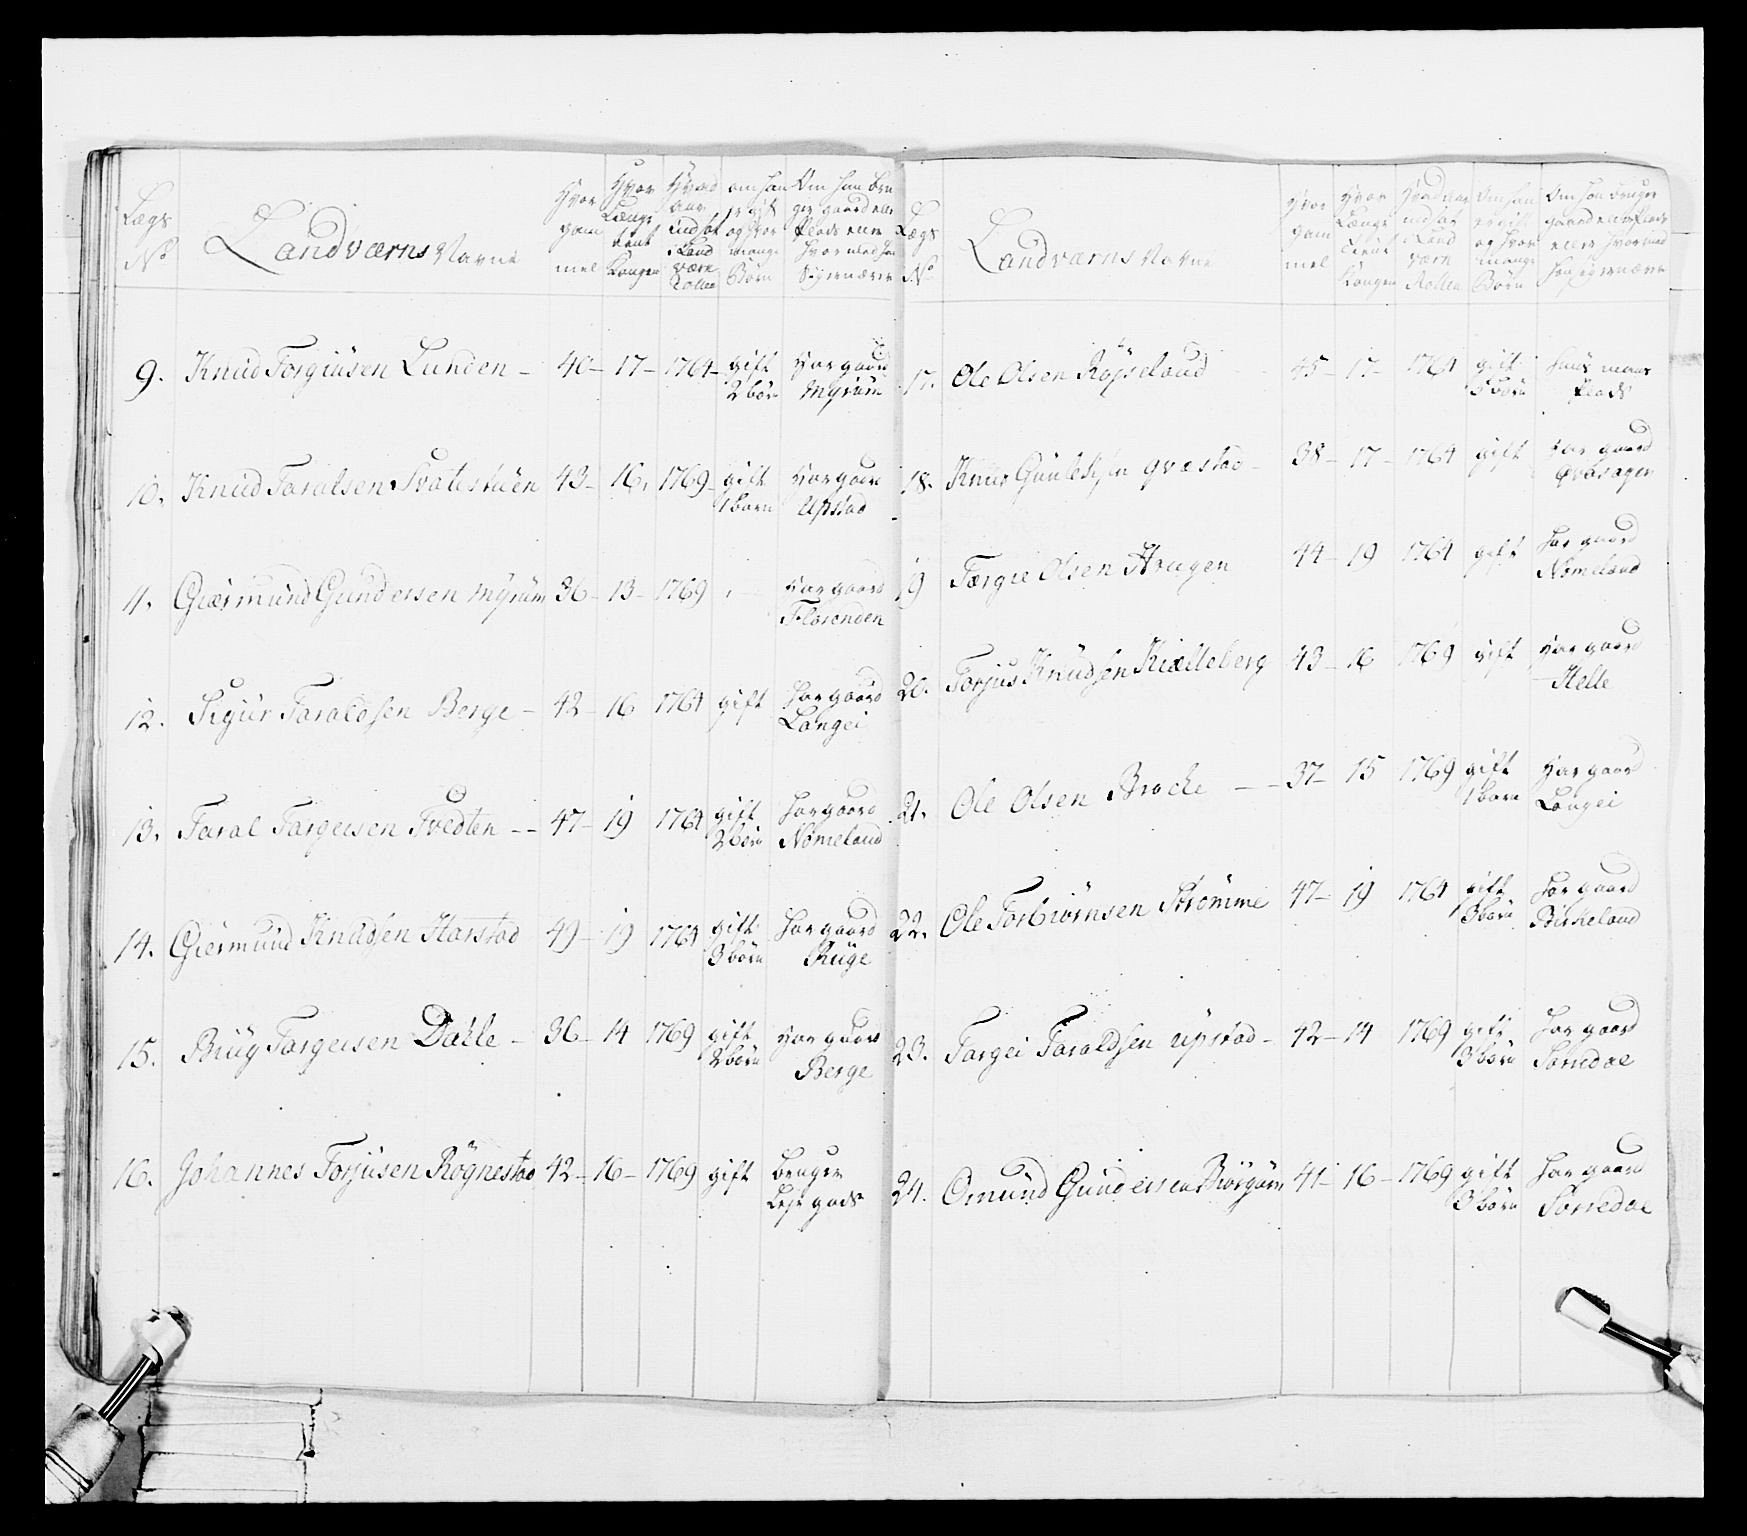 Lægs No
Landværns Navne
Hvor gam mel
Hvor Længe tient Kongen
Hvad aar indsat i Land værn Rollen
om han er gift og hvor mange Børn
Om han bru ger gaard eller Plads eller hvormed han sig ernærer
9. Knud Torgiusen Lunden – 40 – 17 – 1764 – gift 2 børn Har gaard Myrum
10. Knud Taralsen Svatestuen 43 – 16, 1769 – gift 1 barn Har gaard Upstad
11. Giermund Gundersen Myrum 36 – 13 – 1769 Har gaard Flarenden
12. Sigur Taraldsen Berge – 42 – 16 1764 gift Har gaard Langei
13. Taral Targeisen Tvedten – – 47 – 19 1764 gift 2 børn Har gaard Nomeland
14. Giermund Knudsen Harstad 49 – 19 1764 gift 3 børn Har gaard Rüge
15. Briüg Targeisen Dahle – 36 – 14 1769 gift 2 børn Har gaard Berge
16. Johannes Torjusen Rögnestad 42 – 16 – 1769 gift bruger Lest gods
Lægs No
Landværns Navne
Hvor gam mel
Hvor Længe tient Kongen
Hvad aar indsat i Land værn Rollen
Om han er gift og hvor mange Børn
Om han bruger gaard eller Plads eller hvormed han sig ernærer
17. Ole Olsen Röjseland 45 – 17 – 1764 gift 5 børn Huus mans Plads
18. Knud Gunleksen Qvestad – 38 – 17 – 1764 gift Har gaard
19 Tærgie Olsen Haugen 44 – 19 1764 gift Har gaard Nomeland
20. Torjus Knudsen Kiælleberg 43 – 16 1769 gift Har gaard Helle
21. Ole Olsen Brocke – – 37 – 15 1769 gift 1 barn Har gaard Langei
22. Ole Torbiörnsen Strömme 47 – 19 1764 gift 3 børn Har gaard Birkeland
23. Targei Taraldsen Upstad – 42 – 14 1769 gift 3 børn Har gaard Sörredal
24. Omund Gundersen Biörgum 41 – 16 – 1769 gift 3 børn Har gaard Sörredal